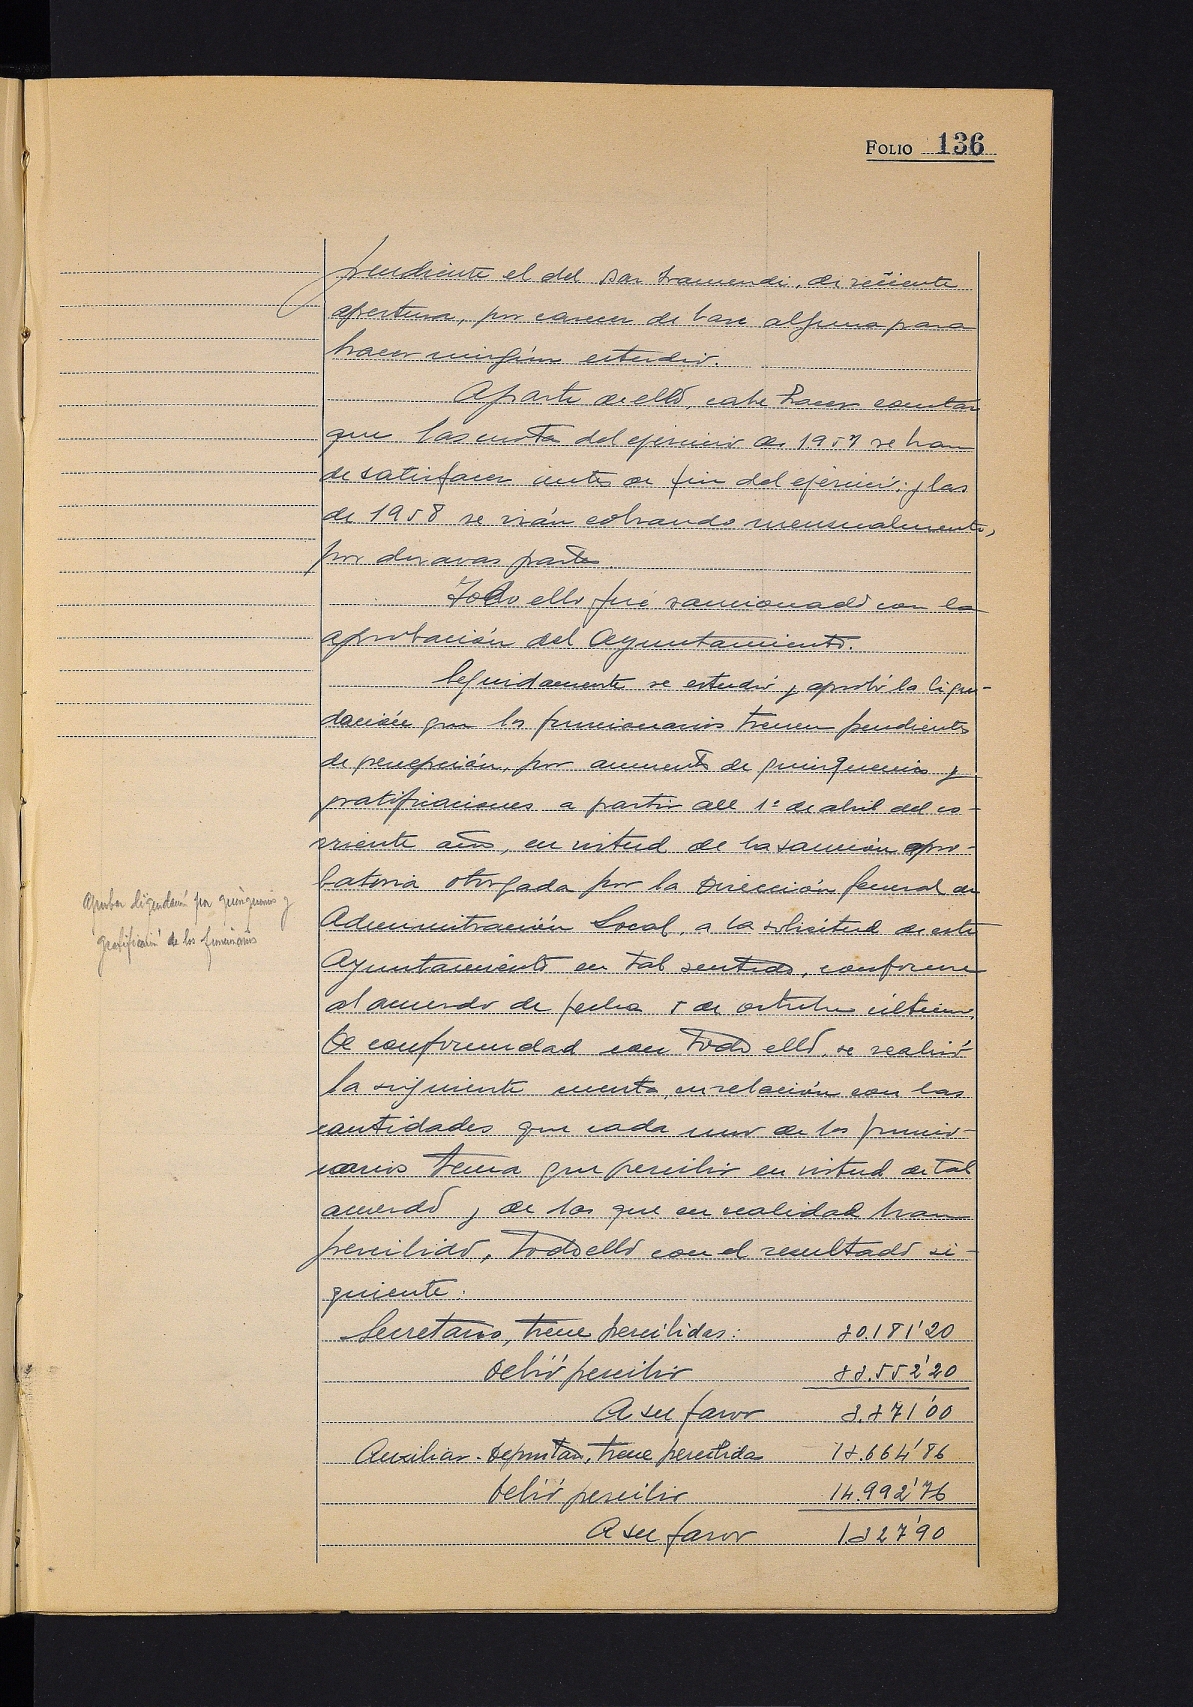 FOLIO 136
pendiente el del Bar Txamendi, de reciente
apertura, por carecer de base alguna para
hacer ningún estudio.
Aparte de ello, cabe hacer constar
que las cuotas del ejercicio de 1957 se han
de satisfacer antes de fin del ejercicio; y las
de 1958 se irán cobrando mensualmente,
por doceavas partes.
Todo ello fué sancionado con la
aprobación del Ayuntamiento.
Seguidamente se estudió y aprobó la liqui-
dación que los funcionarios tienen pendientes
de percepción, por aumento de quinquenios y
gratificaciones a partir del 1º de abril del co-
rriente año, en virtud de la sanción apro-
batoria otorgada por la Dirección General de
Administración Local, a la solicitud de este
Ayuntamiento en tal sentido, conforme
al acuerdo de fecha 5 de octubre último.
De conformidad con todo ello, se realizó
la siguiente cuenta, en relación con las
cantidades que cada uno de los funcio-
narios tenía que percibir en virtud de tal
acuerdo y de las que en realidad han
percibido, todo ello con el resultado si-
guiente:
Aprobar liquidación por quinquenios y
gratificación de los funcionarios
Secretario, tiene percibidas: 30.181'20
Debió percibir 33.552'20
A su favor 3.371'00
Auxiliar-Depositario, tiene percibidas 13.664'86
Debió percibir 14.992'76
A su favor 1.327'90